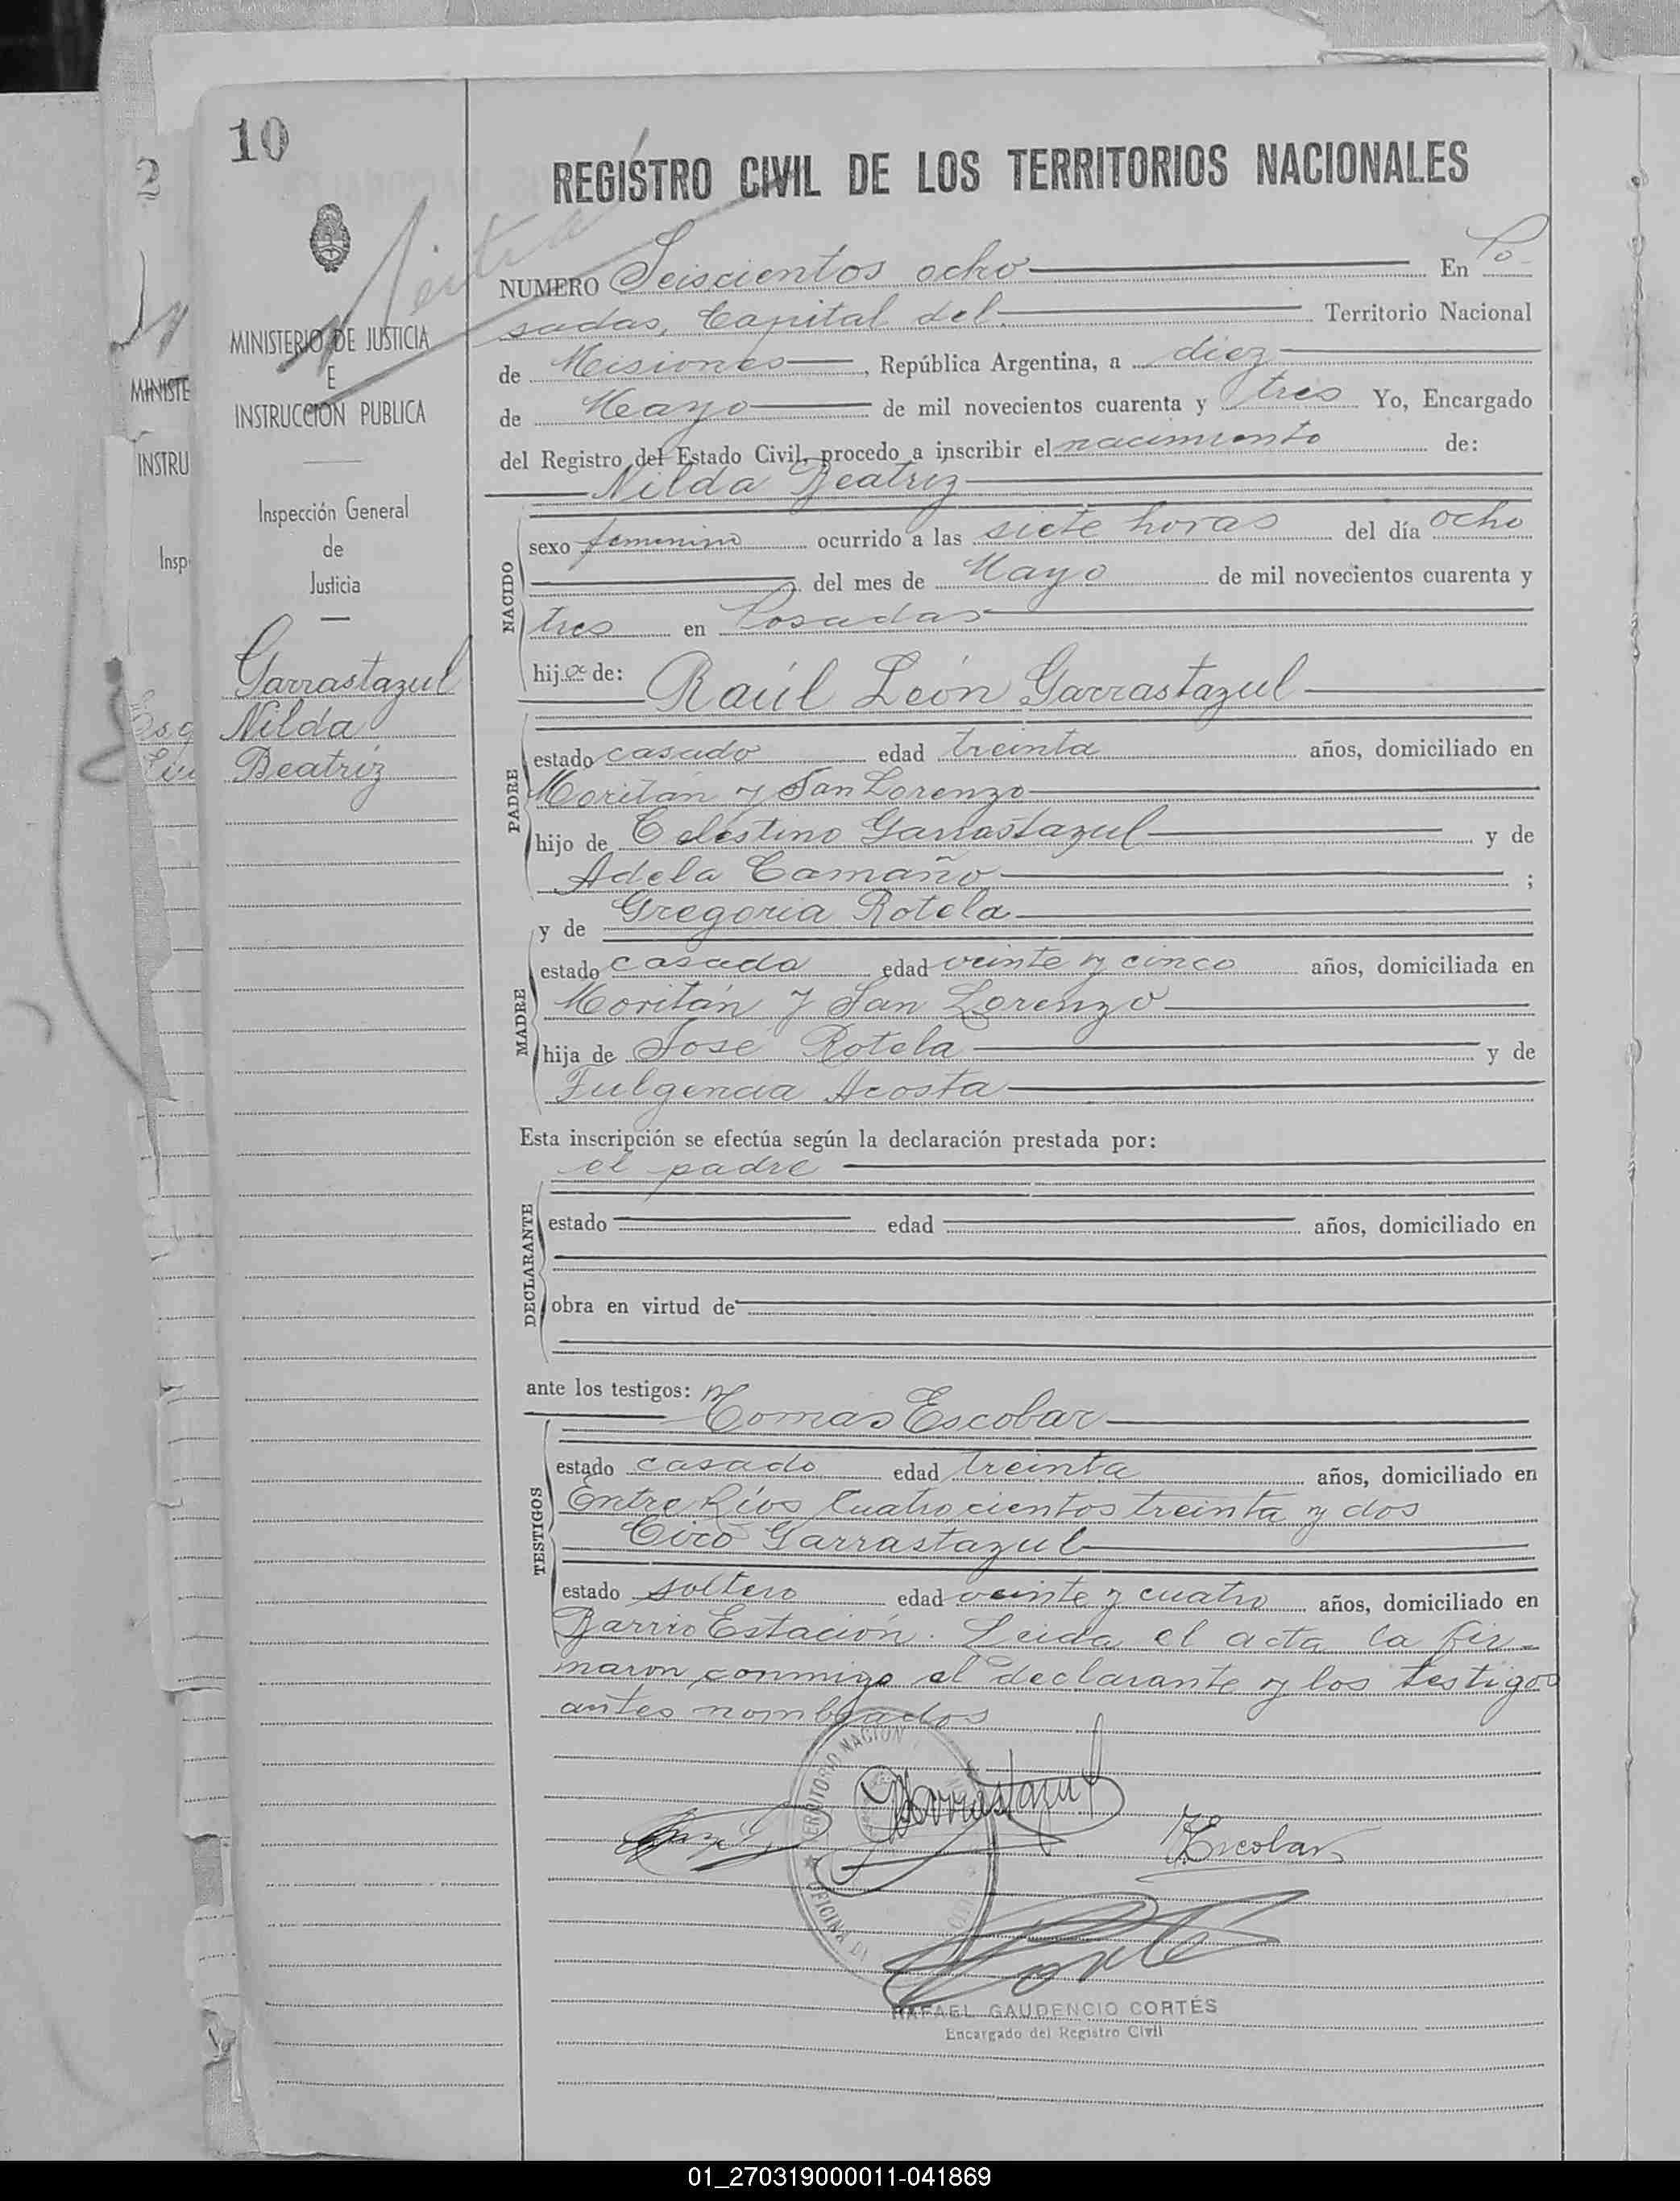 10
2
REGISTRO CIVIL DE LOS TERRITORIOS NACIONALES
MINISTERIO DE JUSTICIA
E
INSTRUCCIÓN PUBLICA
Inspección General
de
Justicia
Garrastazul
Nilda
Beatriz
MINISTE
INSTRU
Insp
NUMERO Seiscientos ocho En Po-
sadas, Capital del Territorio Nacional
de Misiones, República Argentina, a diez
de Mayo de mil novecientos cuarenta y tres Yo, Encargado
del Registro del Estado Civil, procedo a inscribir el nacimiento de:
Nilda Beatriz
NACIDO
sexo femenino ocurrido a las siete horas del día ocho
del mes de Mayo de mil novecientos cuarenta y
tres en Posadas
hija de: Raúl León Garrastazul
PADRE
estado casado edad treinta años, domiciliado en
Moritán y San Lorenzo
hijo de Celestino Garrastazul y de
Adela Camaño ;
y de Gregoria Rotela
MADRE
estado casada edad veinte y cinco años, domiciliada en
Moritán y San Lorenzo
hija de José Rotela y de
Fulgencia Acosta
Esta inscripción se efectúa según la declaración prestada por:
el padre
DECLARANTE
estado edad años, domiciliado en
obra en virtud de
ante los testigos: Tomas Escobar
TESTIGOS
estado casado edad treinta años, domiciliado en
Entre Ríos Cuatrocientos treinta y dos
Ciro Garrastazul
estado soltero edad veinte y cuatro años, domiciliado en
Barrio Estación. Leida el acta la fir-
maron conmigo el declarante y los testigos
antes nombrados
TERRITORIO NACION
OFICINA DE
Garrastazul
Escobar
RAFAEL GAUDENCIO CORTÉS
Encargado del Registro Civil
01_270319000011-041869